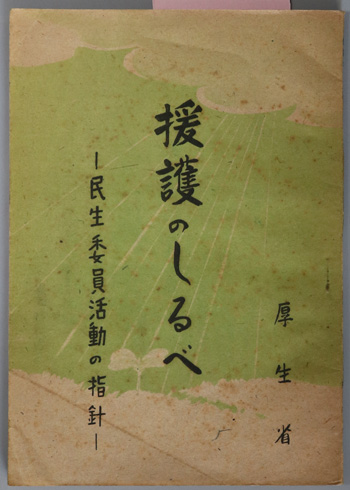 援護のしるべ
―民生委員活動の指針―
厚生省